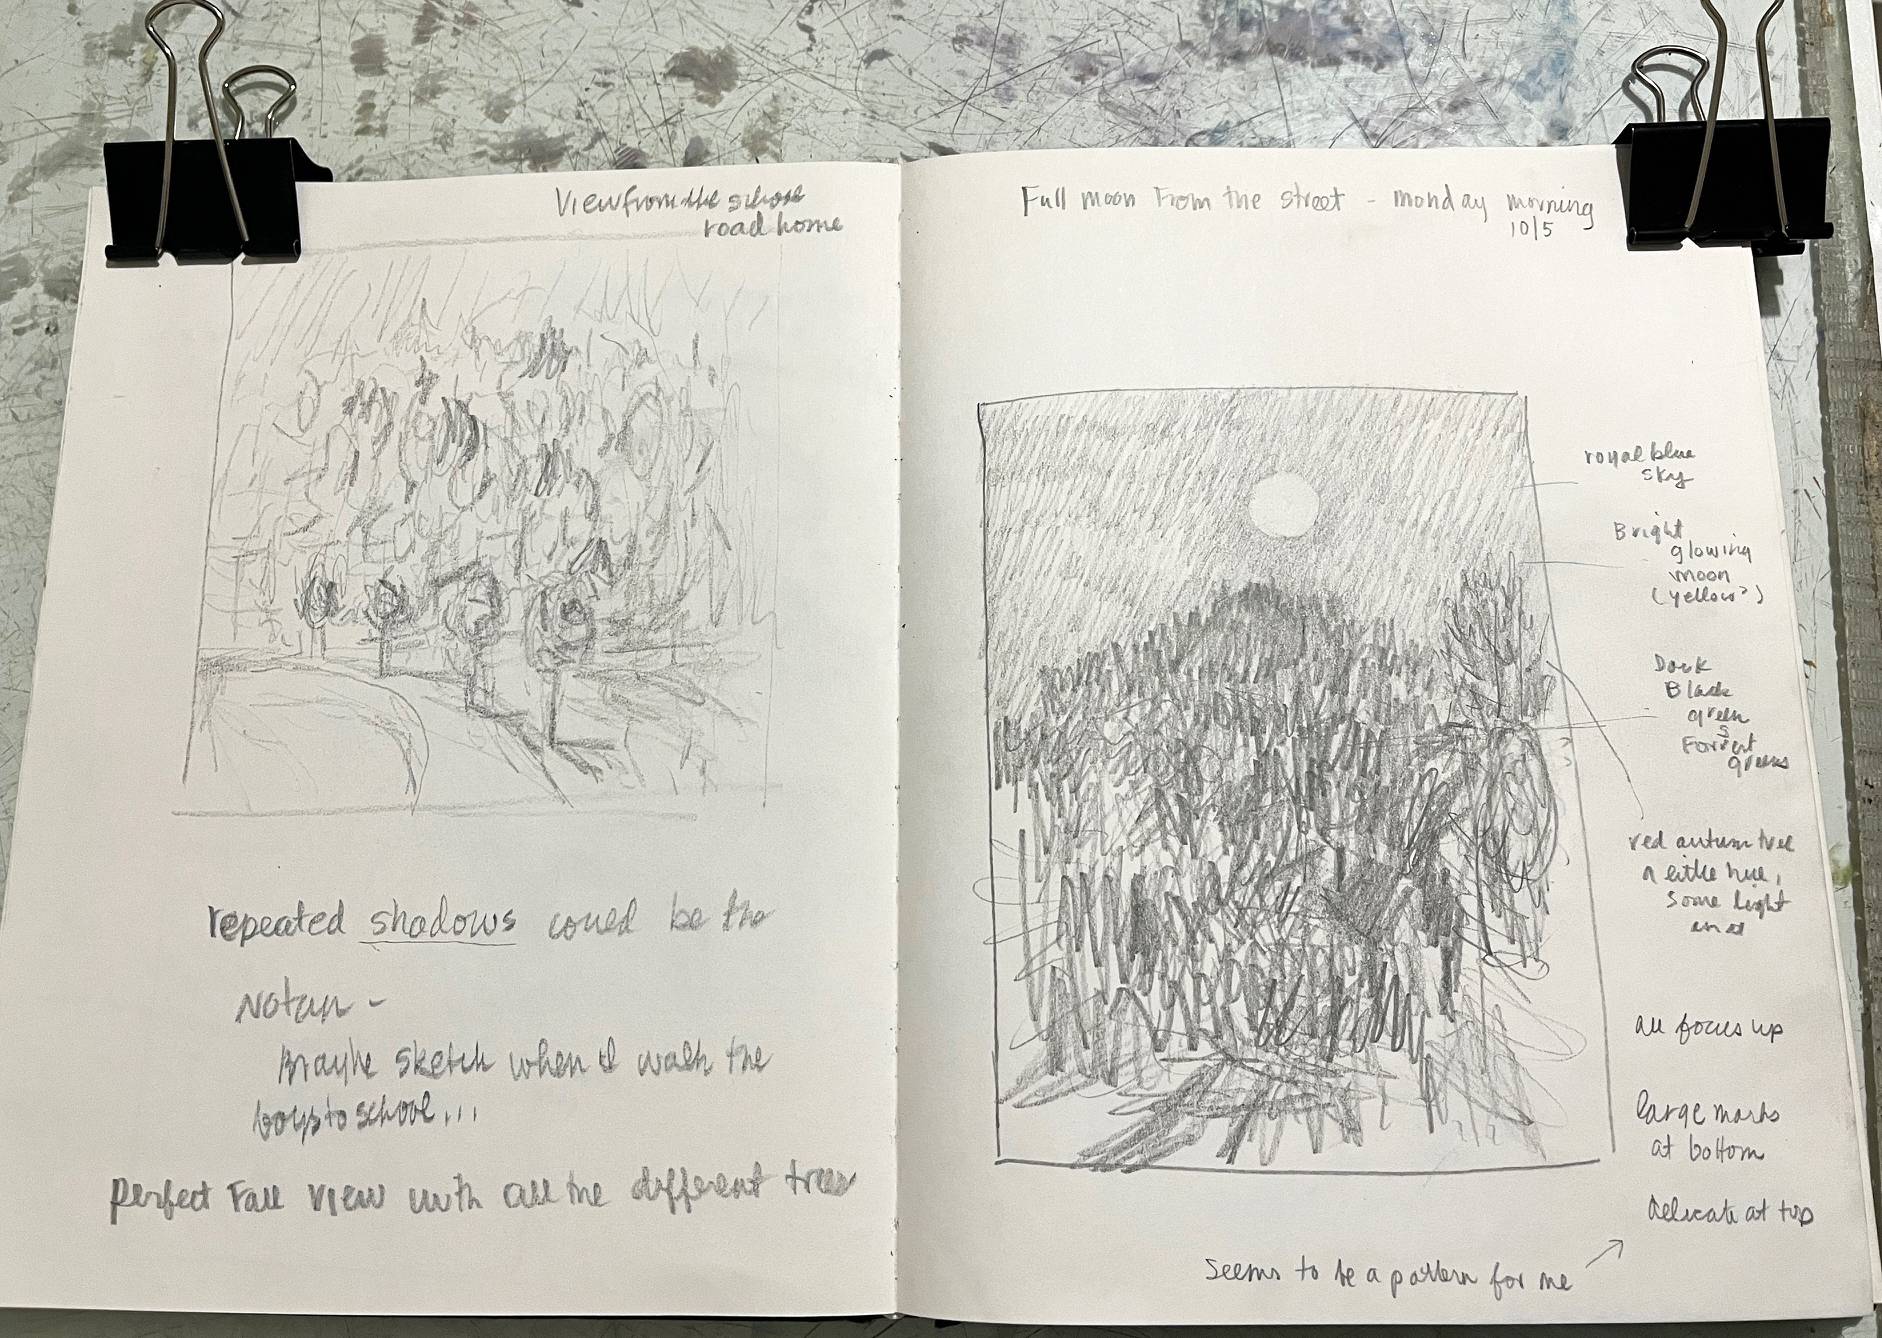 View from the school
road home
repeated shadows could be the
Notan -
Maybe sketch when I walk the
boys to school...
Perfect Fall view with all the different trees
Full moon From the street - monday morning
10/5
royal blue
sky
Bright
glowing
moon
(yellow?)
Dark
Black
green
s
Forrest
greens
red autumn tree
n either hue,
some light
on it
all focus up
large marks
at bottom
delicate at top
Seems to be a pattern for me